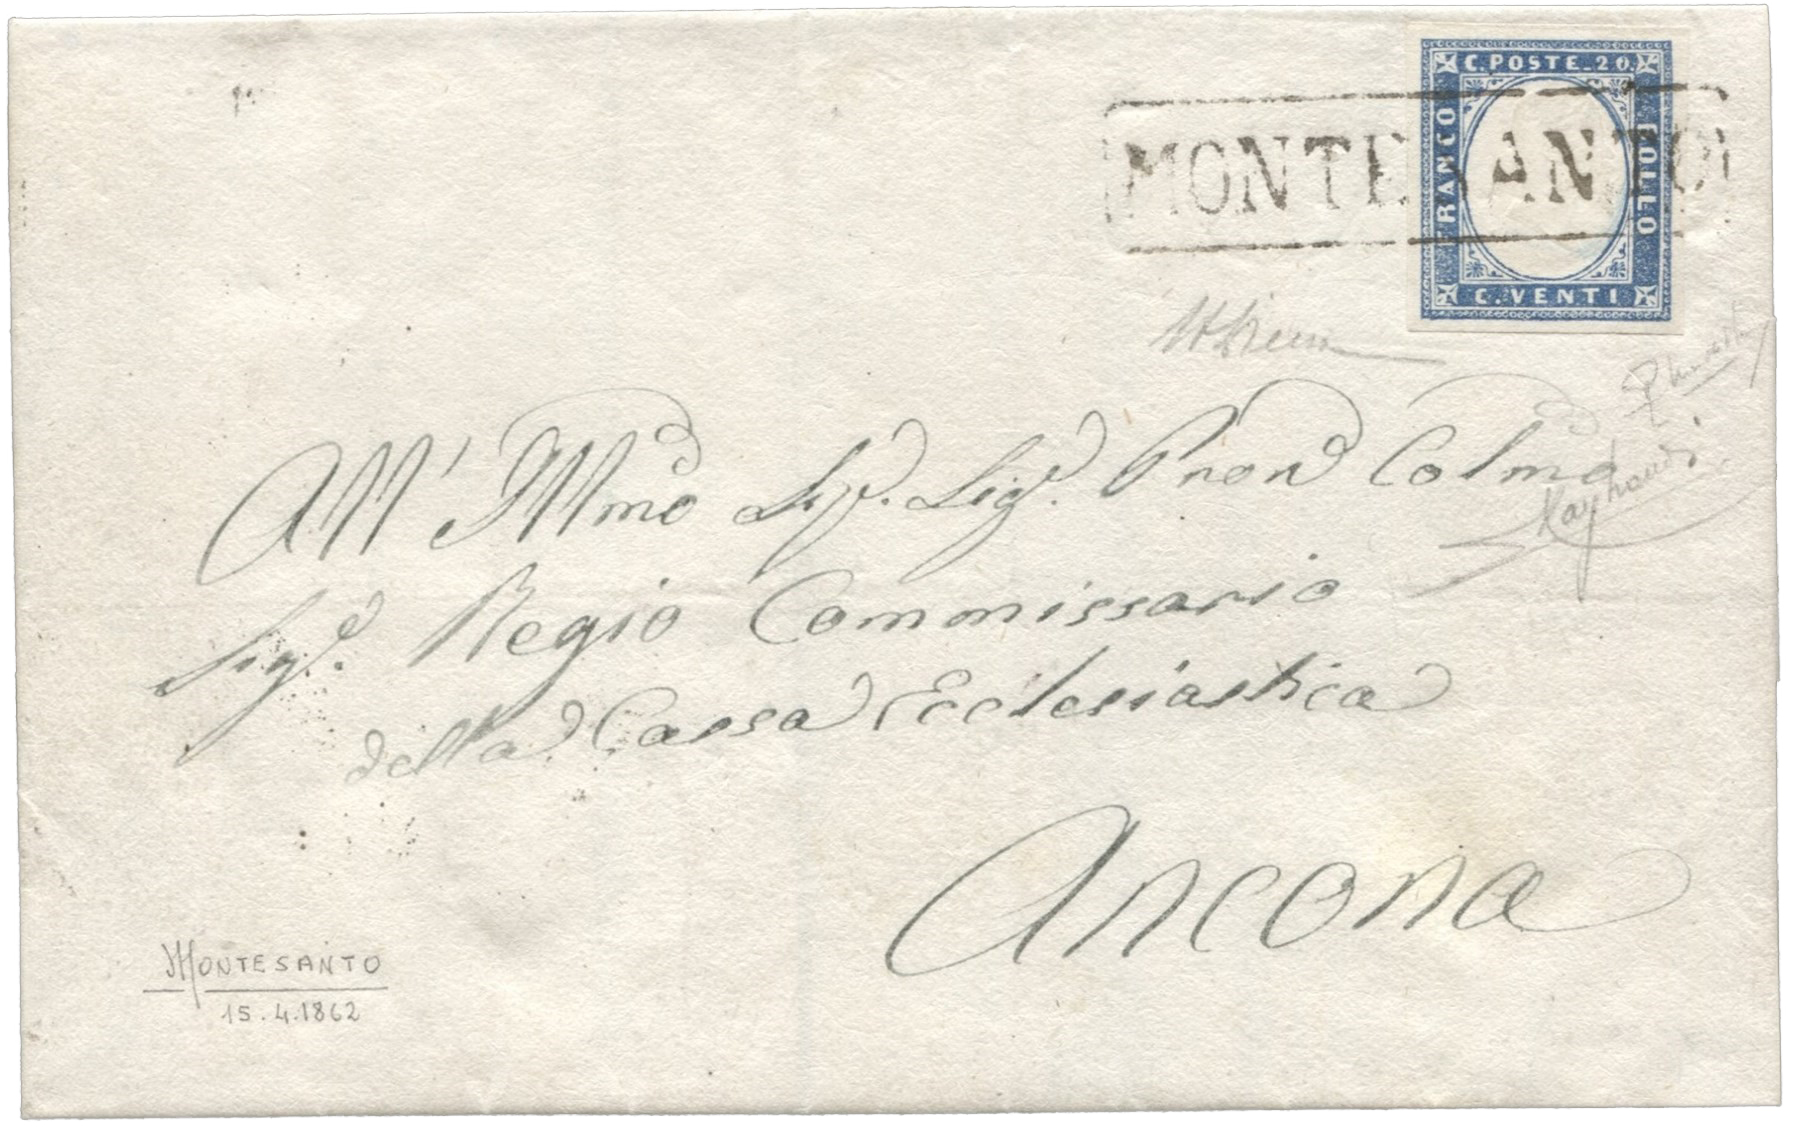 C. POSTE. 20.
FRANCO
BOLLO
C. VENTI
MONTESANTO
All' Illmo Sigr. Sigr. Pron Colmo
Raybaudi
Sigr. Regio Commissario
della Cassa Ecclesiastica
Ancona
MONTESANTO
15.4.1862